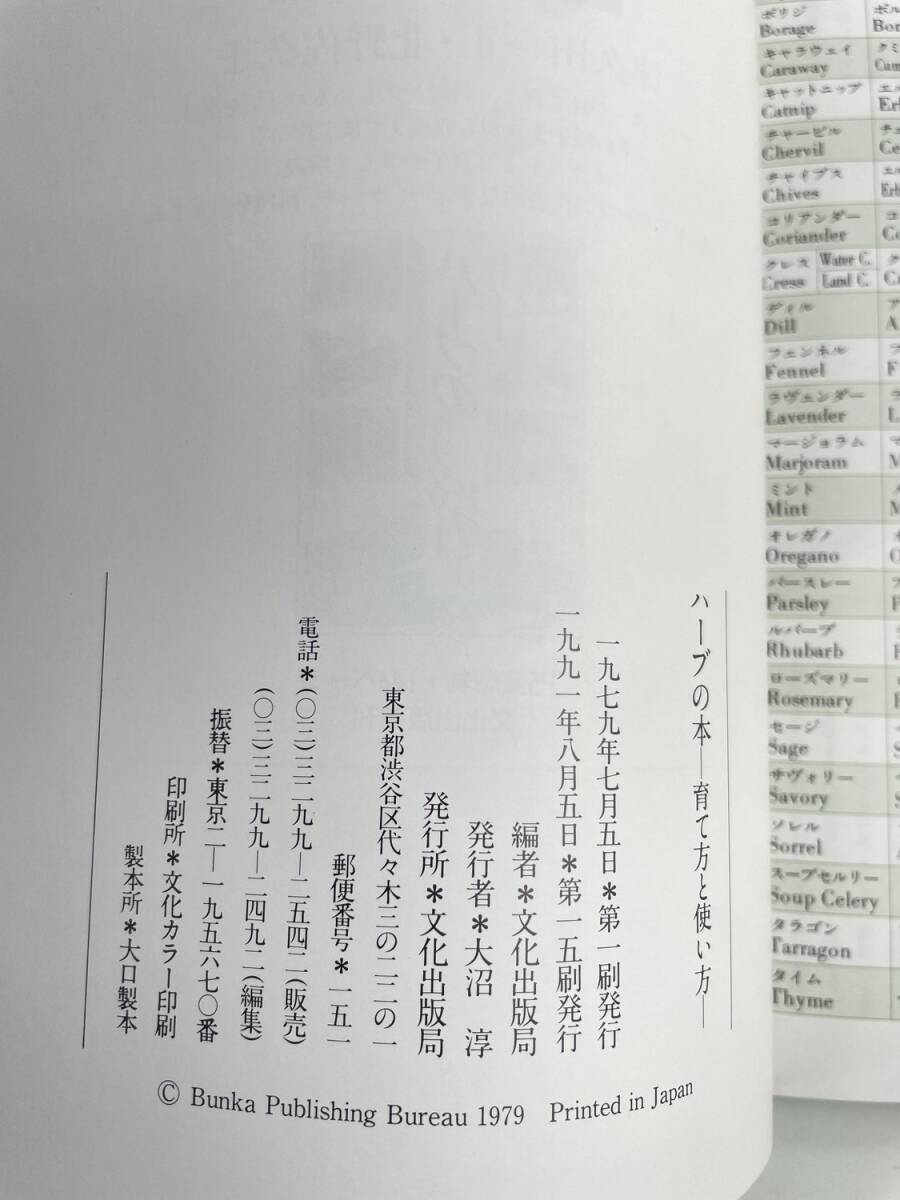 ハーブの本—育て方と使い方—
一九七九年七月五日＊第一刷発行
一九九一年八月五日＊第一五刷発行
編者＊文化出版局
発行者＊大沼　淳
発行所＊文化出版局
東京都渋谷区代々木三の二二の一
郵便番号＊一五一
電話＊(〇三)三二九九—二五四二(販売)
(〇三)三二九九—二四九二(編集)
振替＊東京二—一九五六七〇番
印刷所＊文化カラー印刷
製本所＊大口製本
© Bunka Publishing Bureau 1979　Printed in Japan
ボリジ
Borage
キャラウェイ
Caraway
キャットニップ
Catnip
チャービル
Chervil
チャイブス
Chives
コリアンダー
Coriander
クレス
Cress
Water C.
Land C.
ディル
Dill
フェンネル
Fennel
ラヴェンダー
Lavender
マージョラム
Marjoram
ミント
Mint
オレガノ
Oregano
パースレー
Parsley
ルバーブ
Rhubarb
ローズマリー
Rosemary
セージ
Sage
サヴォリー
Savory
ソレル
Sorrel
スープセルリー
Soup Celery
タラゴン
Tarragon
タイム
Thyme